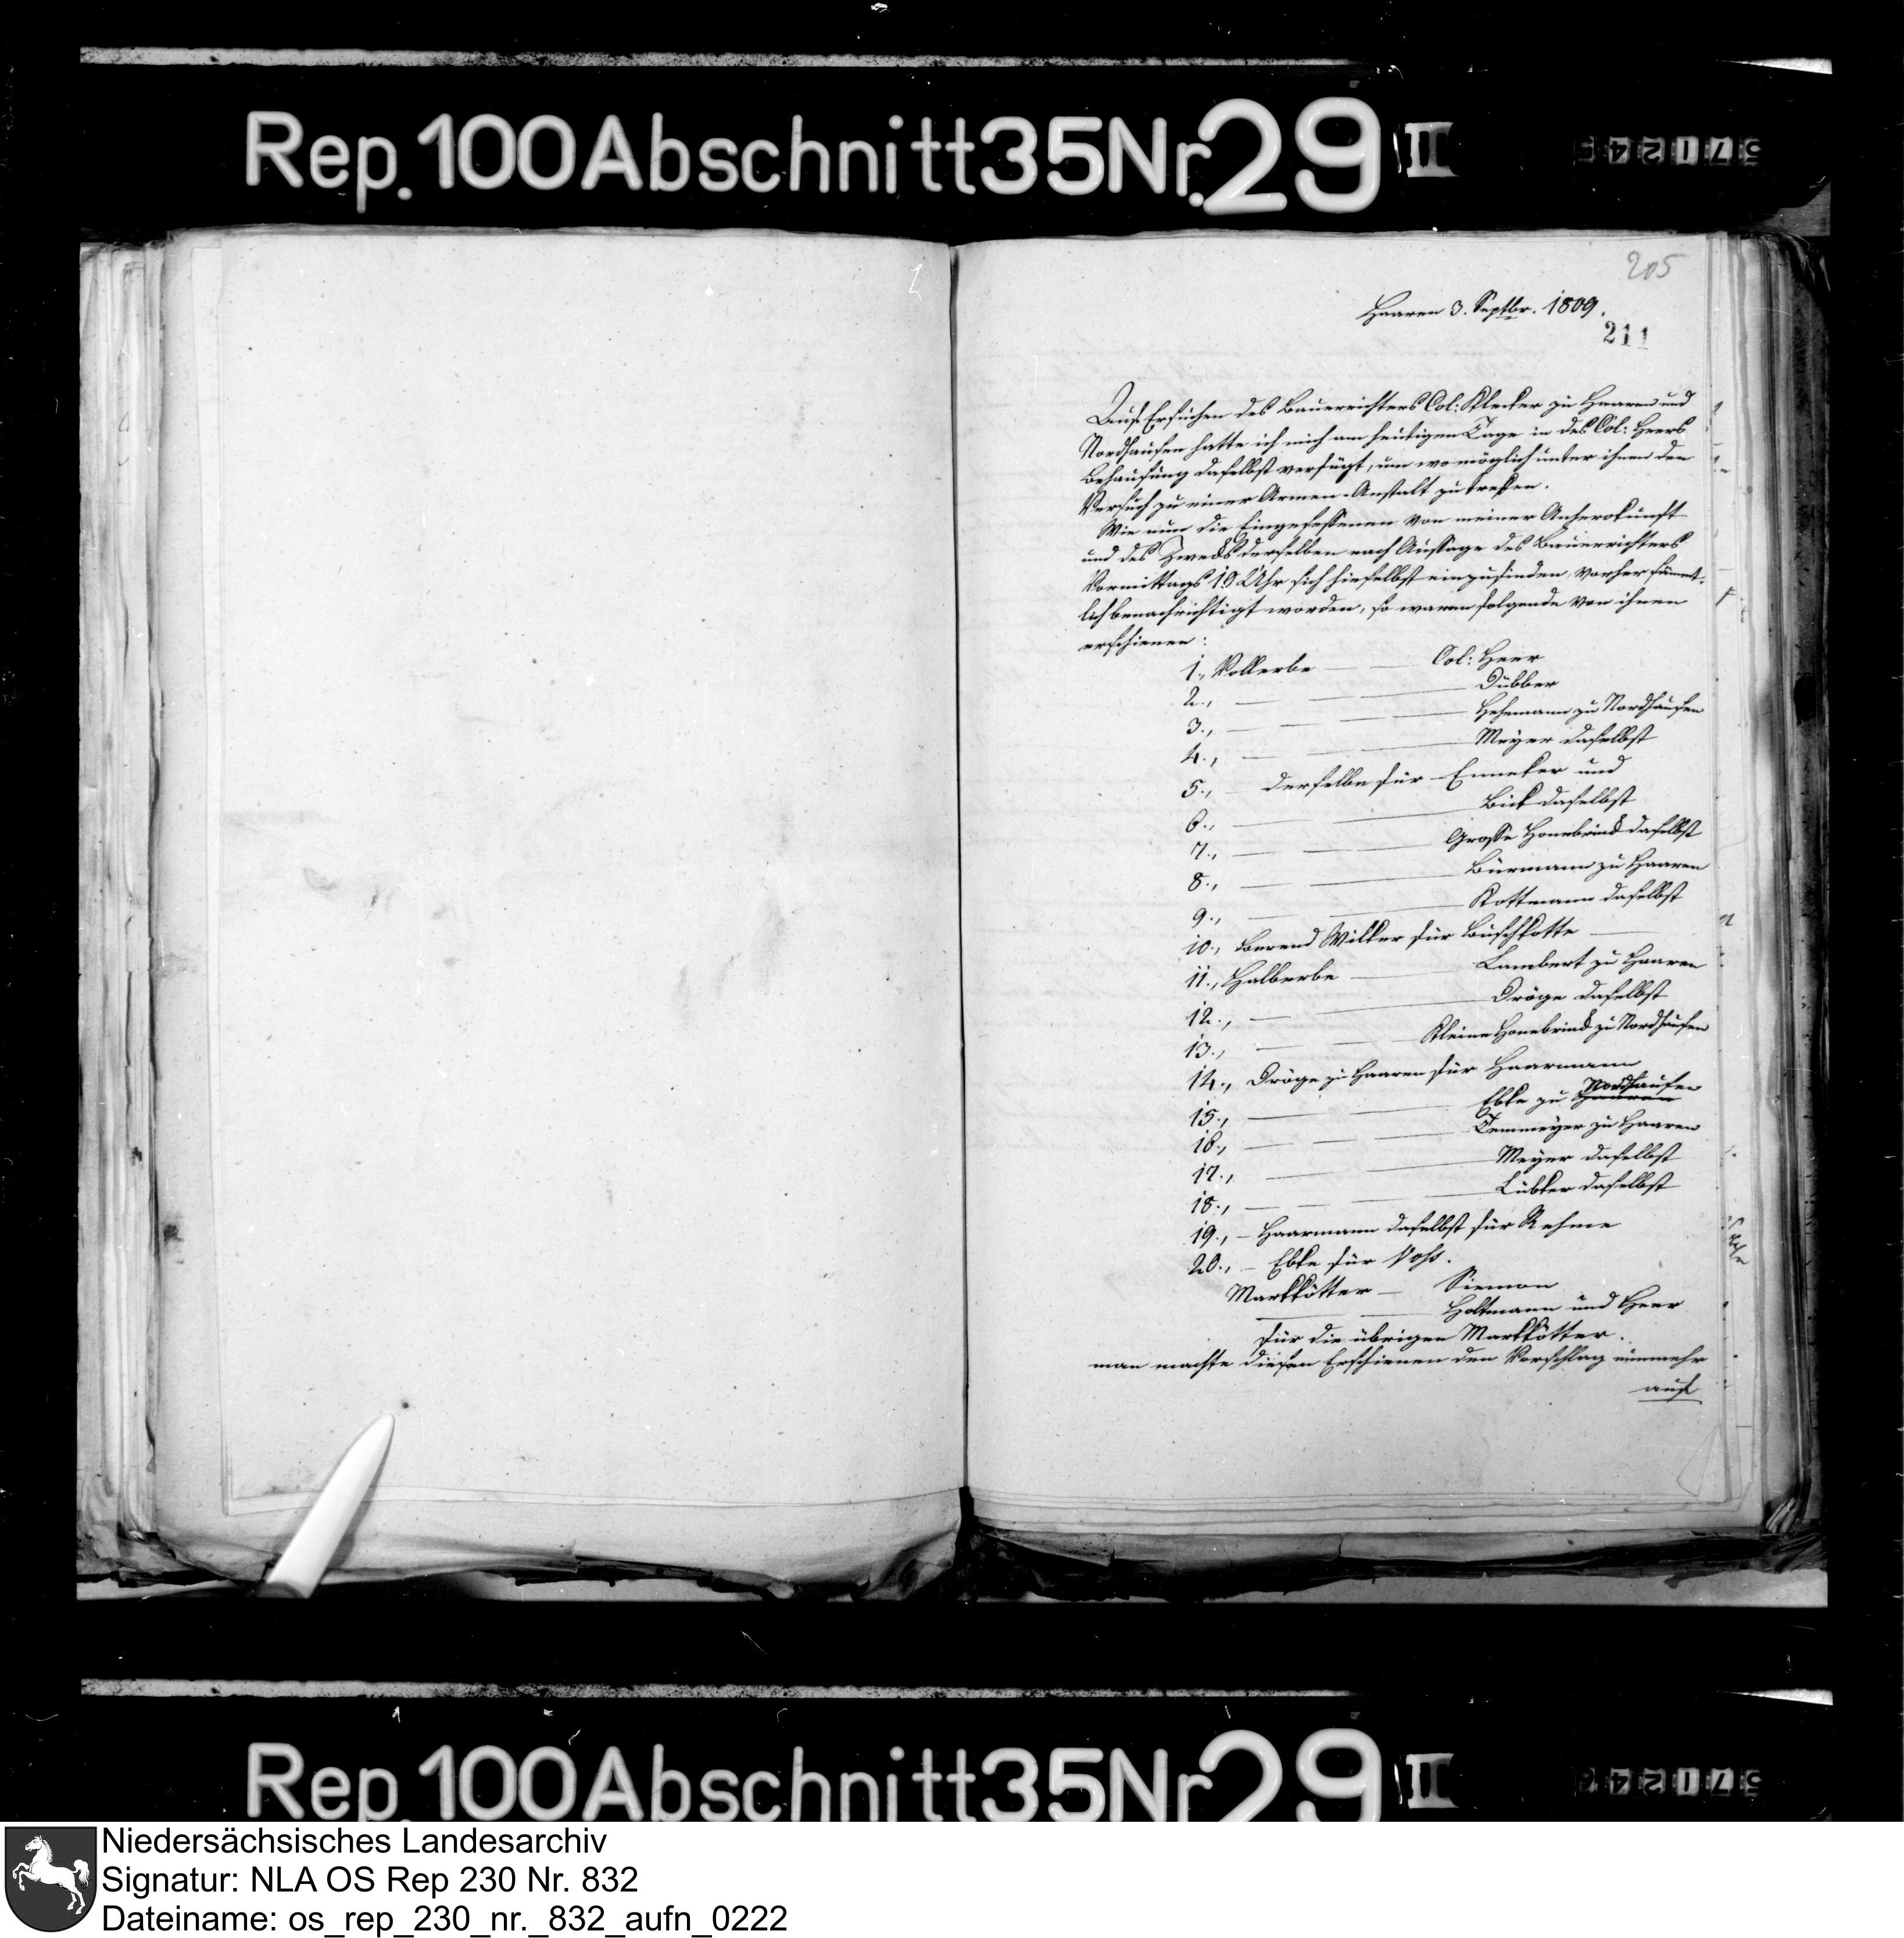 Rep. 100 Abschnitt 35 Nr. 29 II
57124
205
Haaren 3. Septbr. 1809.
211
Auf Ersuchen des Bauerrichters Col: Klecker zu Haaren und
Nordhausen hatte ich mich am heutigen Tage in des Col: Heers
Behausung daselbst verfügt, um wo möglich unter ihnen den
Versuch zu einer Armen-Anstalt zu treffen.
Wie nun die Eingesessenen von meiner Anherokunft
und des Zwecks derselben nach Aussage des Bauerrichters
Vormittags 10 Uhr sich hieselbst einzufinden, vorher sämmt-
lich benachrichtigt worden, so waren folgende von ihnen
erschienen:
1., Vollerbe — — Col: Heer
2., — — — Dübber
3., — — — Hehemann zu Nordhausen
4., — — — Meyer daselbst
5., — derselbe für Enneker und
6., — — — Bick daselbst
7., — — — Grosse Honebrink daselbst
8., — — — Bürmann zu Haaren
9., — — — Kottmann daselbst
10., Berend Wilker für Buschkotte —
11., Halberbe — — Lambert zu Haaren
12., — — — Dröge daselbst
13., — — — Kleine Honebrink zu Nordhausen
14., Dröge zu Haaren für Haarmann
15., — — — Ebke zu Haaren Nordhausen
16., — — — Temmeyer zu Haaren
17., — — — Meyer daselbst
18., — — — Lübker daselbst
19., — Haarmann daselbst für Rehme
20., — Ebke für Voss.
Markkötter — Siemon
— — Holtmann und Heer
für die übrigen Markkötter.
man machte diesen Erschienen den Vorschlag nunmehr
auf
Rep. 100 Abschnitt 35 Nr. 29 II
57124
Niedersächsisches Landesarchiv
Signatur: NLA OS Rep 230 Nr. 832
Dateiname: os_rep_230_nr._832_aufn_0222